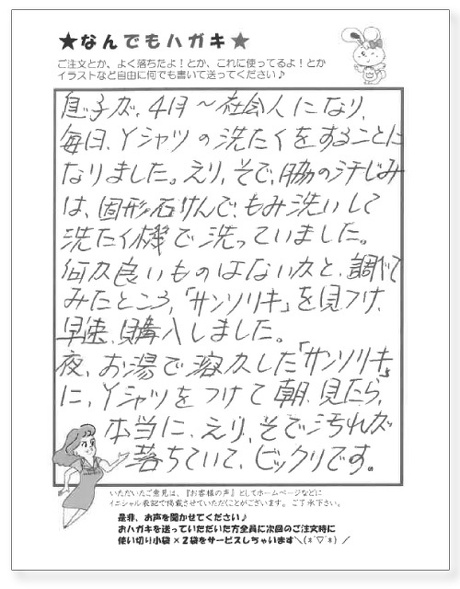 ★なんでもハガキ★
ご注文とか、よく落ちたよ！とか、これに使ってるよ！とか
イラストなど自由に何でも書いて送ってください♪
息子が、4月～社会人になり、
毎日、Yシャツの洗たくをすることに
なりました。えり、そで、脇の汗じみ
は、固形石けんで、もみ洗いして
洗たく機で洗っていました。
何か良いものはないかと、調べて
みたところ、「サンソリキ」を見つけ、
早速、購入しました。
夜、お湯で溶かした「サンソリキ」
に、Yシャツをつけて朝、見たら、
本当に、えり、そで汚れが
落ちていて、ビックリです。
いただいたご意見は、『お客様の声』としてホームページなどに
イニシャル表記で掲載させていただくことがございます。ご了承下さい。
是非、お声を聞かせてください♪
おハガキを送っていただいた方全員に次回のご注文時に
使い切り小袋×2袋をサービスしちゃいます＼(*´▽`*)／